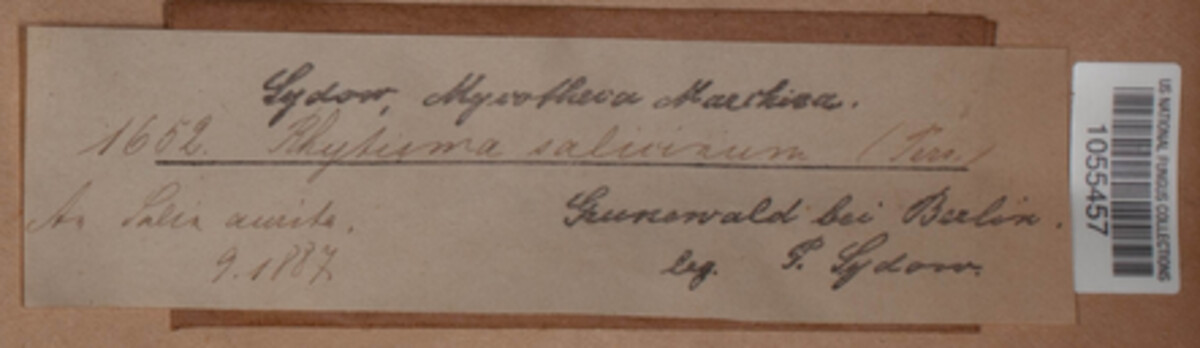 Sydow, Mycotheca Marchica.
1652. Rhytisma salicinum (Pers.)
An Salix aurita.
9.1887
Grunewald bei Berlin.
leg. P. Sydow.
US NATIONAL FUNGUS COLLECTIONS
1055457